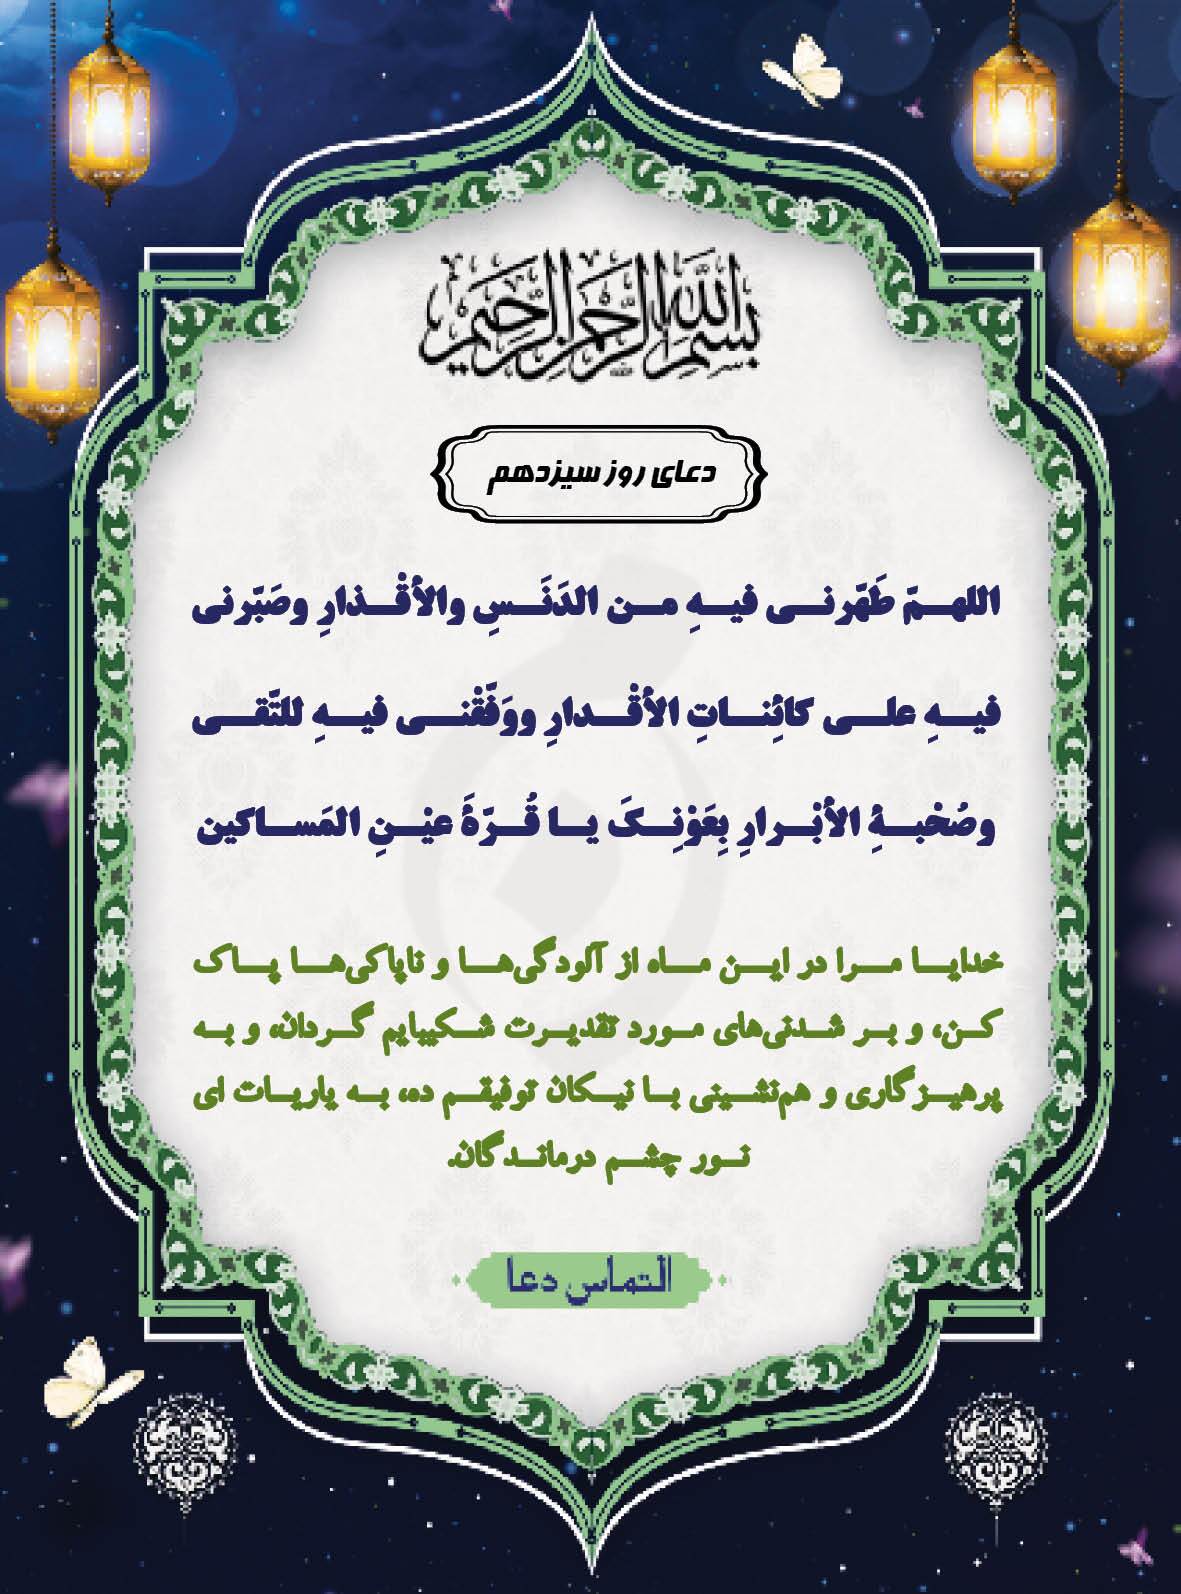 بسم الله الرحمن الرحیم
دعای روز سیزدهم
اللهمّ طَهّرنی فیهِ من الدَنَسِ والأقْذارِ وصَبّرنی
فیهِ علی کائِناتِ الأقْدارِ ووَفّقْنی فیهِ للتّقی
وصُحْبةِ الأبْرارِ بِعَوْنِکَ یا قُرّةَ عیْنِ المَساکین
خدایا مرا در این ماه از آلودگی‌ها و ناپاکی‌ها پاک
کن، و بر شدنی‌های مورد تقدیرت شکیبایم گردان، و به
پرهیزگاری و هم‌نشینی با نیکان توفیقم ده، به یاریات ای
نور چشم درماندگان.
التماس دعا